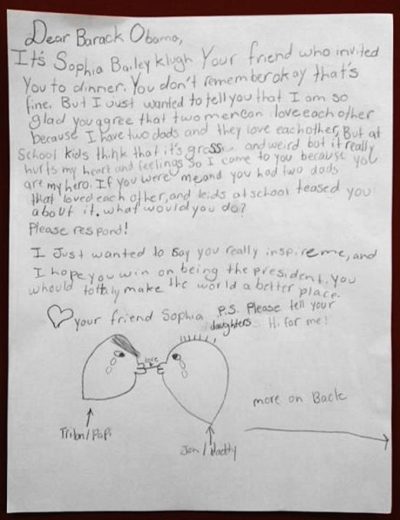 Dear Barack Obama,
It's Sophia Bailey klugh Your friend who invited
You to dinner. You don't remember okay that's
fine. But I Just wanted to tell you that I am so
glad you agree that two men can love each other
because I have two dads and they love each other. But at
School kids think that it's gross and weird but it really
hurts my heart and feelings So I come to you because you
are my hero. If you were me and you had two dads
that loved each other, and kids at school teased you
about it. what would you do?
Please respond!
I Just wanted to say you really inspire me, and
I hope you win on being the president. you
whould totally make the world a better place.
your friend Sophia P.S. Please tell your
daughters Hi for me!
love
more on Back
/Papi
Jon/Daddy